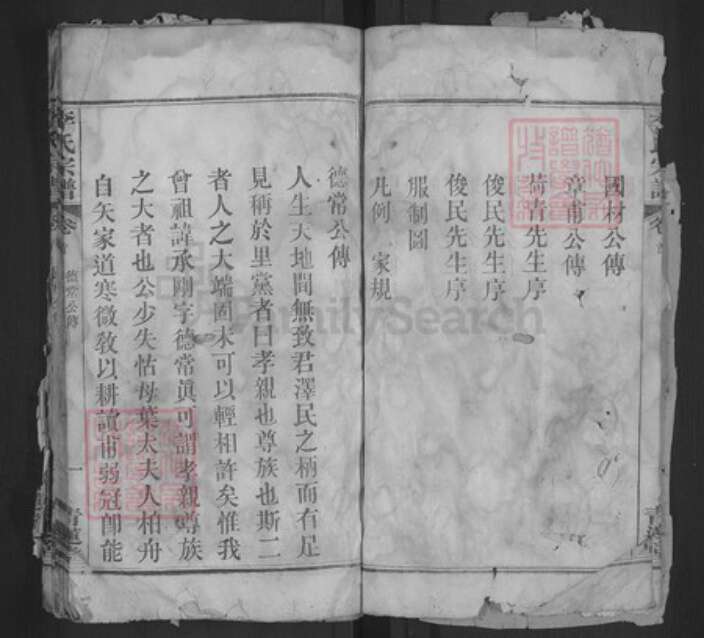 國材公傳
章甫公傳
荷青先生序
俊民先生序
俊民先生序
服制圖
凡例 家規
德常公傳
人生天地間無致君澤民之柄而有足
見稱於里黨者曰孝親也尊族也斯二
者人之大端固未可以輕相許矣惟我
曾祖諱承剛字德常真可謂孝親尊族
之大者也公少失怙母葉太夫人柏舟
自矢家道寒微教以耕讀甫弱冠卽能
李氏宗譜
卷
德常公傳
一
青蓮
FamilySearch